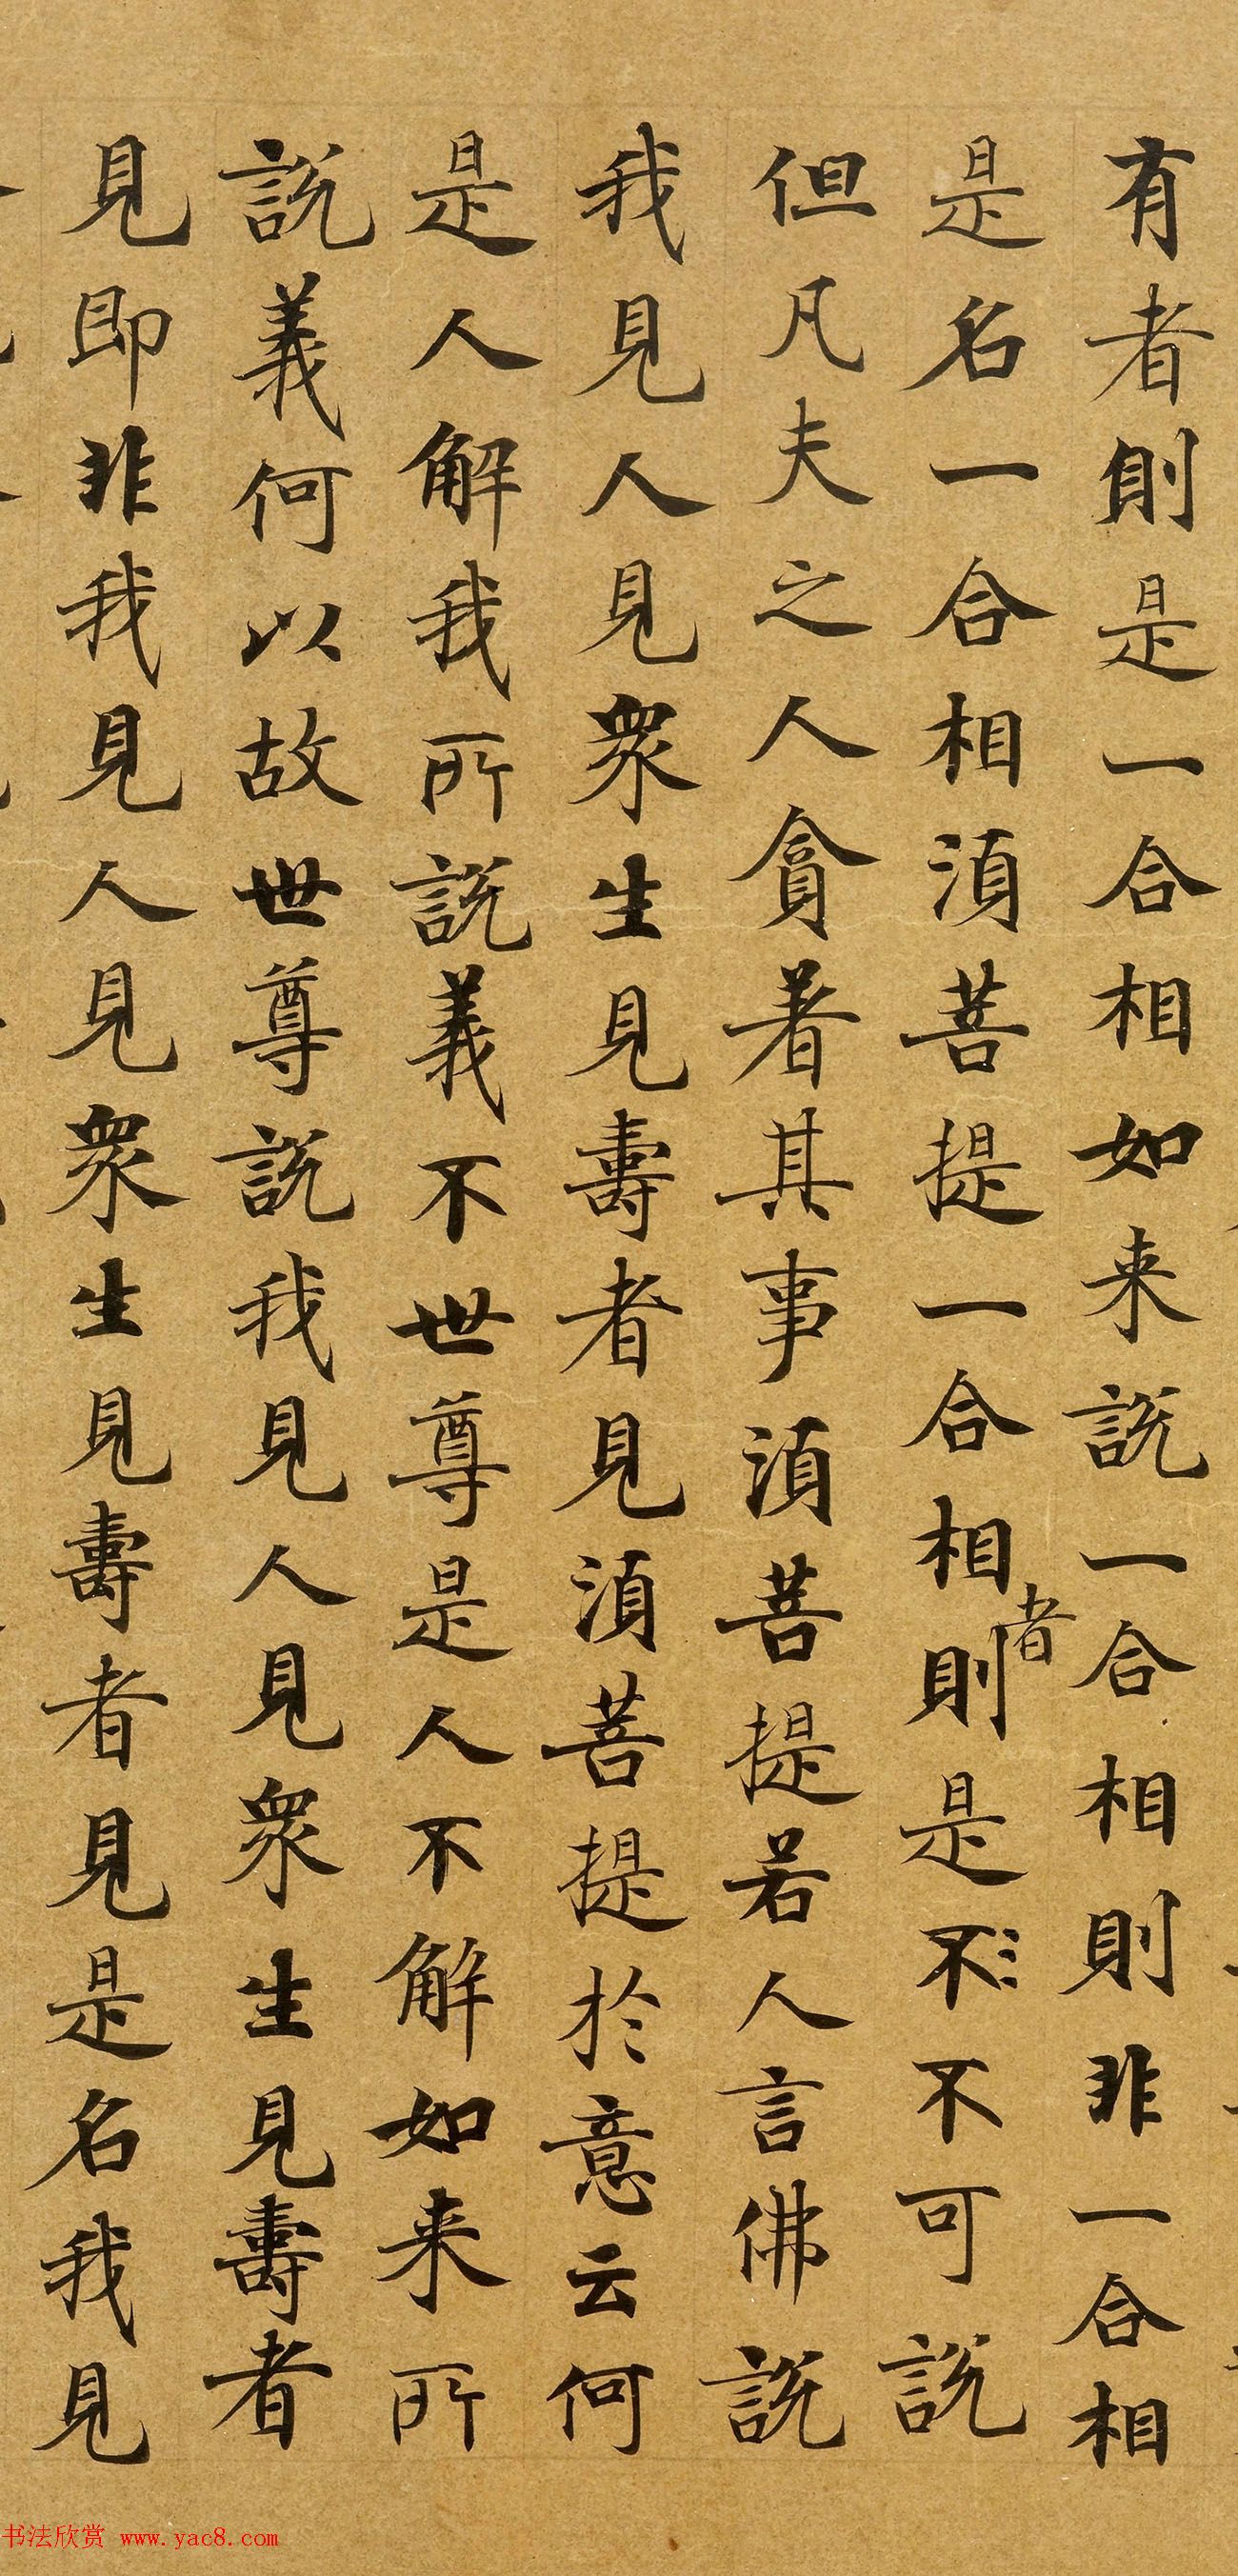 有者則是一合相如来說一合相則非一合相
是名一合相湏菩提一合相者則是不不可說
但凡夫之人貪着其事湏菩提若人言佛說
我見人見衆生見壽者見湏菩提於意云何
是人解我所說義不世尊是人不解如来所
說義何以故世尊說我見人見衆生見壽者
見即非我見人見衆生見壽者見是名我見
书法欣赏 www.yac8.com